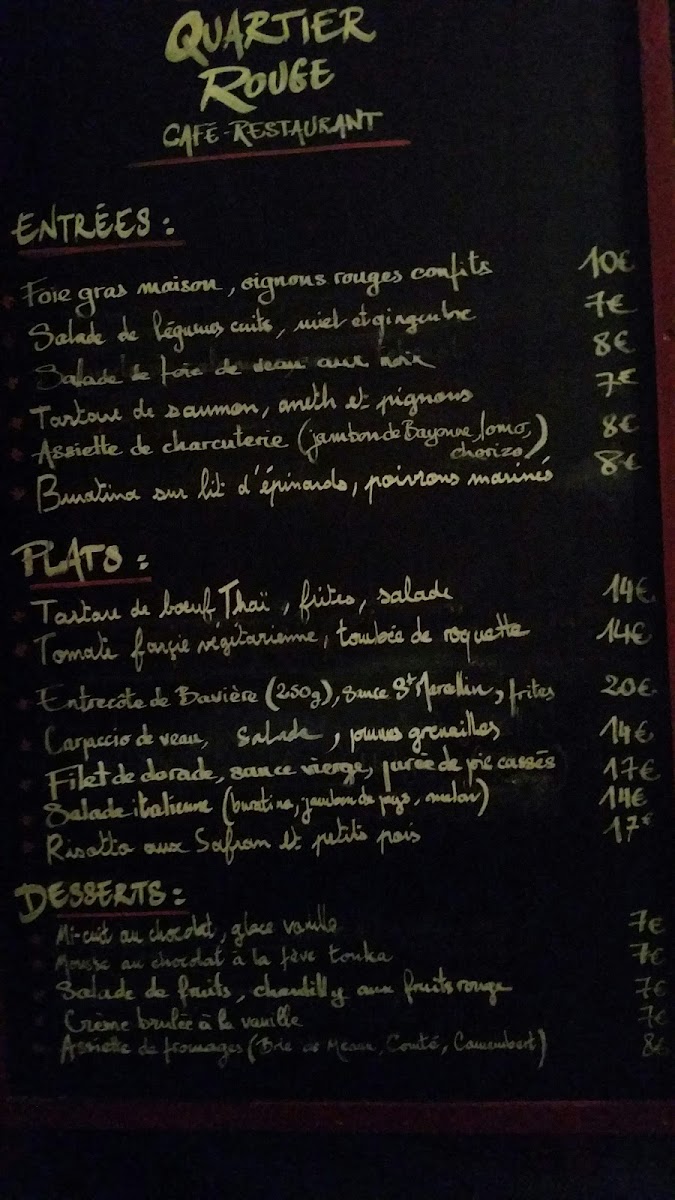 QUARTIER
ROUGE
CAFÉ-RESTAURANT
ENTRÉES :
Foie gras maison, oignons rouges confits 10€
Salade de légumes cuits, miel et gingembre 7€
Salade de foie de veau aux noix 8€
Tartare de saumon, aneth et pignons 7€
Assiette de charcuterie (jambon de Bayonne, lomo, 8€
chorizo)
Buratina sur lit d'épinards, poivrons marinés 8€
PLATS :
Tartare de bœuf Thaï, frites, salade 14€
Tomate farçie végétarienne, tombée de roquette 14€
Entrecôte de Bavière (250g), sauce St Marcellin, frites 20€
Carpaccio de veau, salade, pommes grenailles 14€
Filet de dorade, sauce vierge, purée de pois cassés 17€
Salade italienne (buratina, jambon de pays, melon) 14€
Risotto aux Safran et petits pois 17€
DESSERTS :
Mi-cuit au chocolat, glace vanille 7€
Mousse au chocolat à la fève tonka 7€
Salade de fruits, chantilly aux fruits rouge 7€
Crème brulée à la vanille 7€
Assiette de fromages (Brie de Meaux, Comté, Camembert) 8€